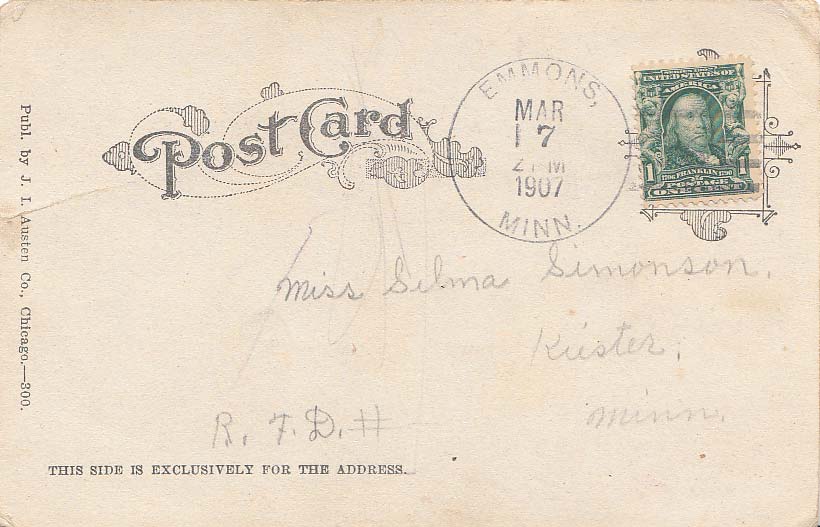 Post Card
EMMONS,
MAR
17
2 PM
1907
MINN.
UNITED STATES OF
AMERICA
1 1706 FRANKLIN 1790 1
POSTAGE
ONE CENT
Publ. by J. I. Austen Co., Chicago.—300.
Miss Selma Simonson.
Küster,
Minn.
R. F. D. #
THIS SIDE IS EXCLUSIVELY FOR THE ADDRESS.